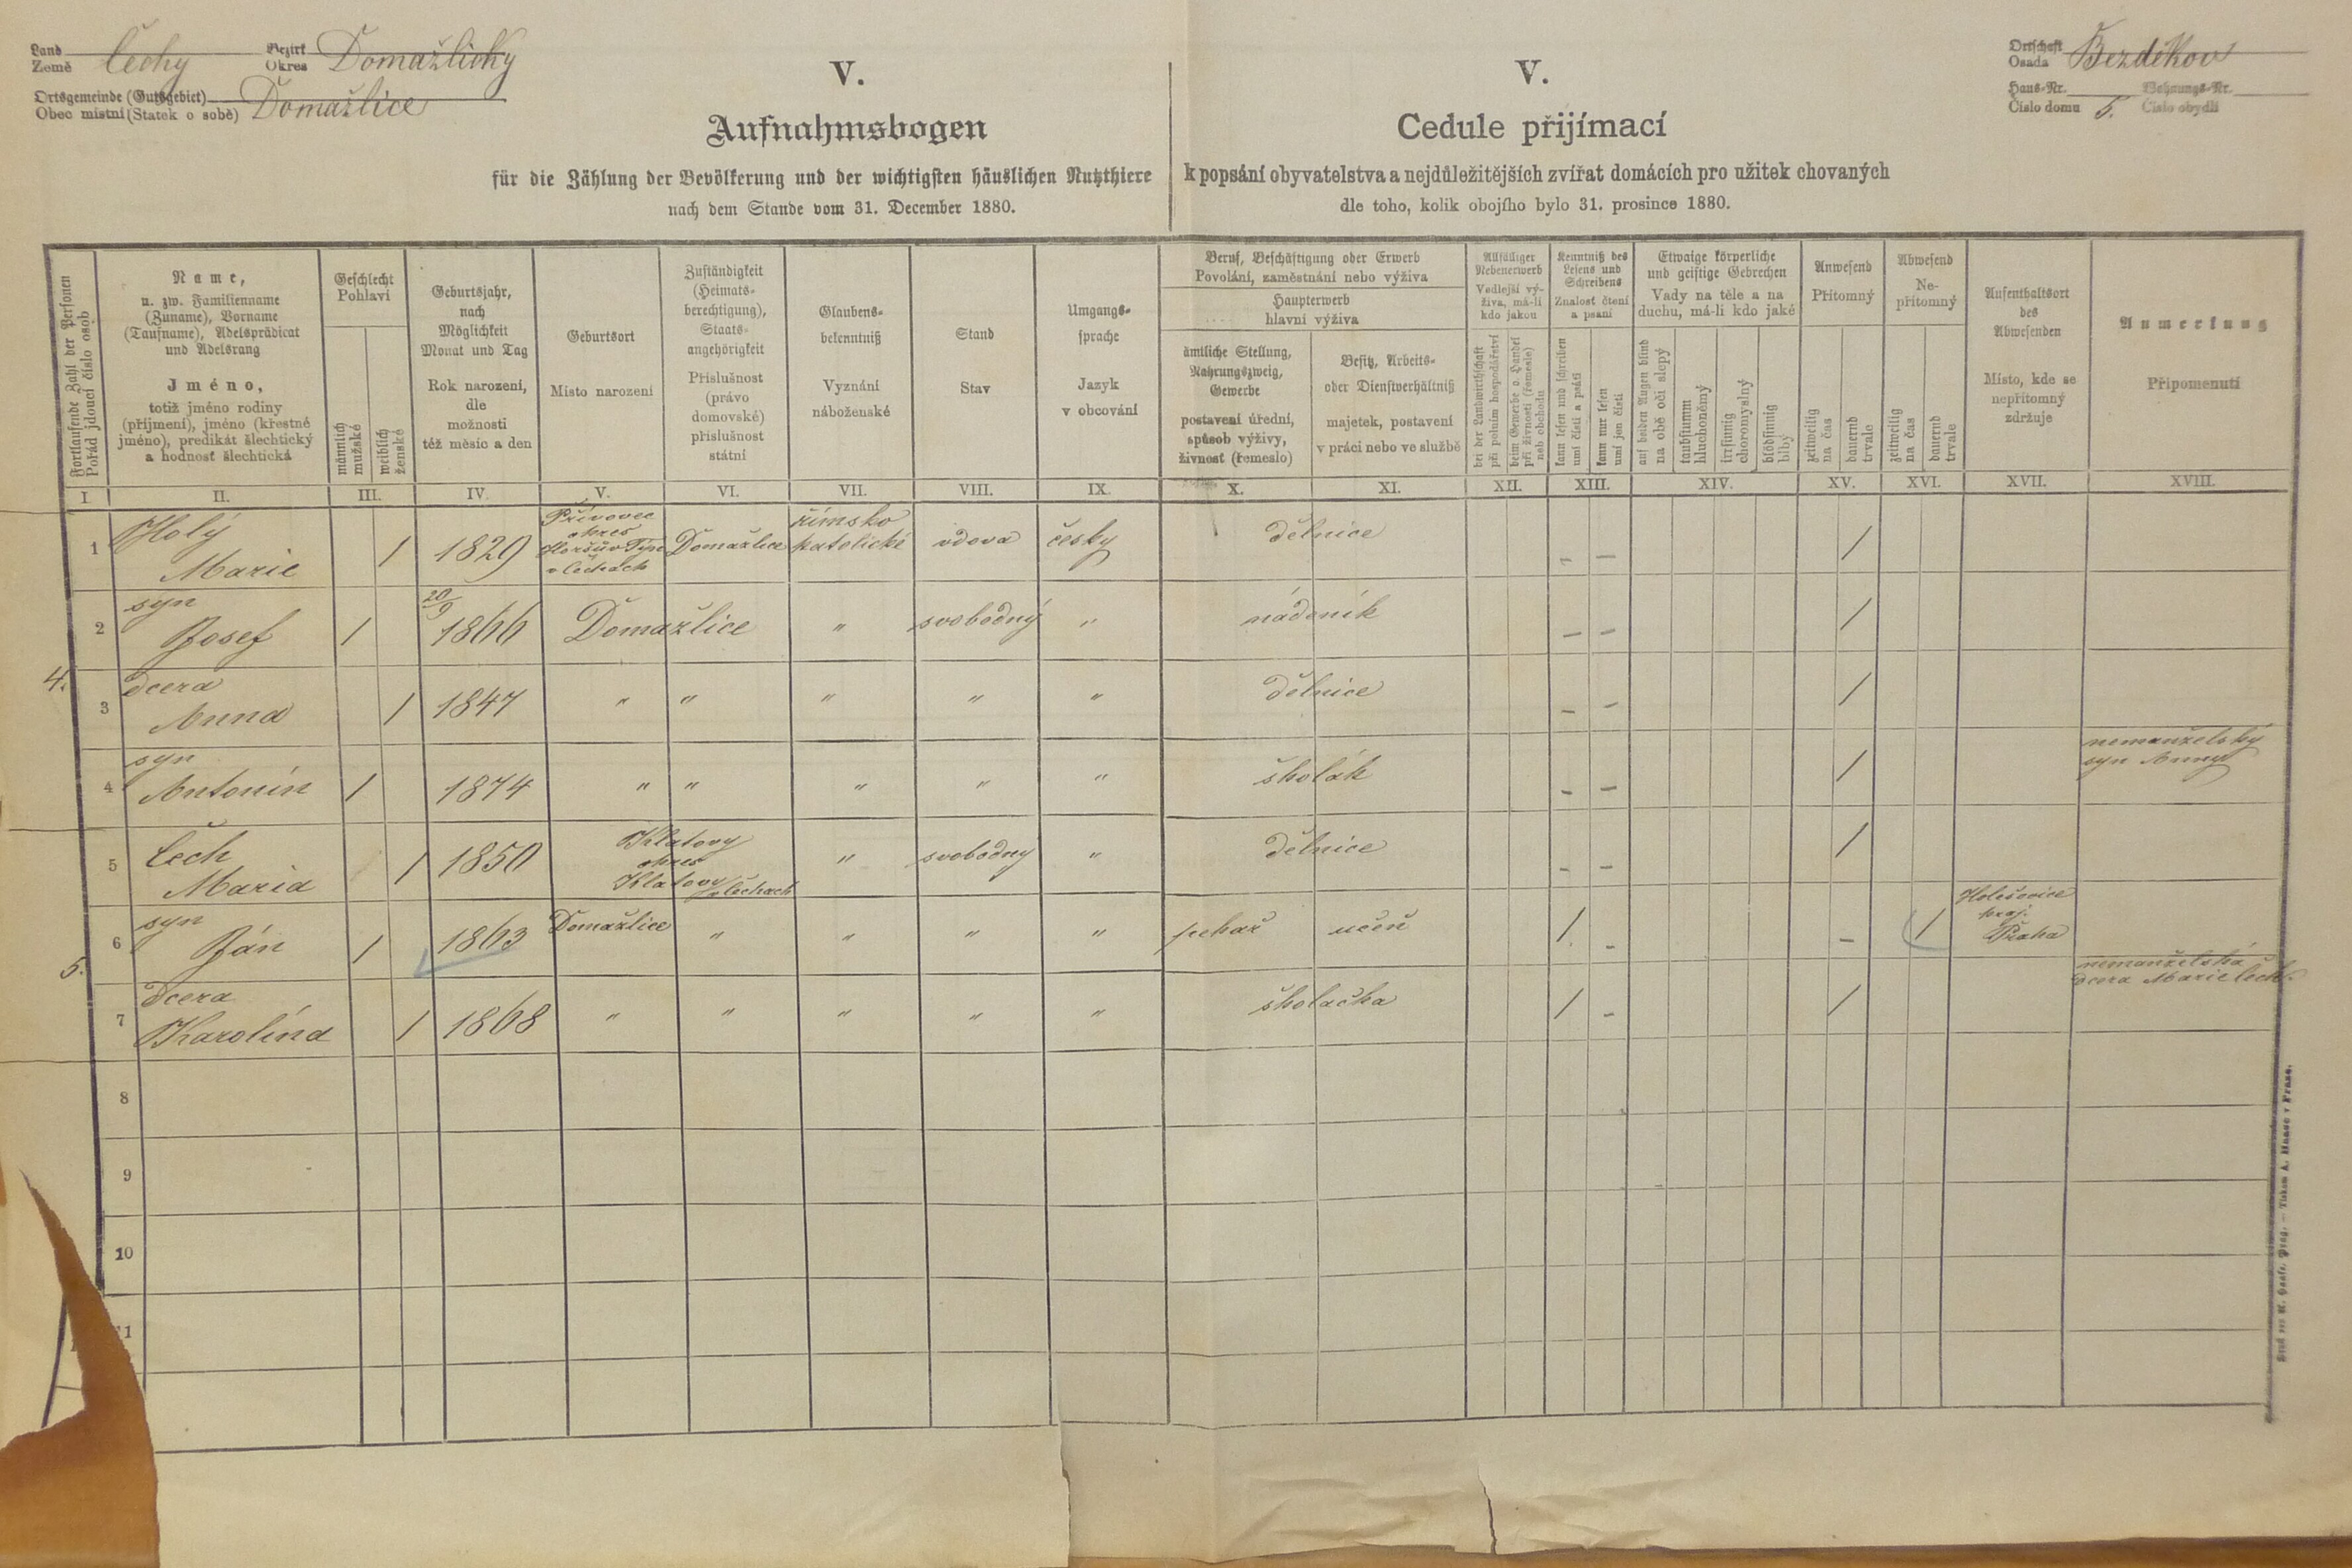 Land
Země Čechy
Bezirk
Okres Domažlický
Ortsgemeinde (Gutsgebiet)
Obec místní (Statek o sobě) Domažlice
V.
Aufnahmsbogen
für die Zählung der Bevölkerung und der wichtigsten häuslichen Nutzthiere
nach dem Stande vom 31. December 1880.
V.
Cedule přijímací
k popsání obyvatelstva a nejdůležitějších zvířat domácích pro užitek chovaných
dle toho, kolik obojího bylo 31. prosince 1880.
Ortschaft
Osada Bezděkov
Haus-Nr. Wohnungs-Nr.
Číslo domu 5. Číslo obydlí
Fortlaufende Zahl der Personen
Pořád jdoucí číslo osob
Name,
u. zw. Familienname
(Zuname), Vorname
(Taufname), Adelsprädicat
und Adelsrang
Jméno,
totiž jméno rodiny
(příjmení), jméno (křestné
jméno), predikát šlechtický
a hodnosť šlechtická
Geschlecht
Pohlaví
männlich
mužské
weiblich
ženské
Geburtsjahr,
nach
Möglichkeit
Monat und Tag
Rok narození,
dle
možnosti
též měsíc a den
Geburtsort
Místo narození
Zuständigkeit
(Heimats-
berechtigung),
Staats-
angehörigkeit
Příslušnost
(právo
domovské)
příslušnost
státní
Glaubens-
bekenntniß
Vyznání
náboženské
Stand
Stav
Umgangs-
sprache
Jazyk
v obcování
Beruf, Beschäftigung oder Erwerb
Povolání, zaměstnání nebo výživa
Haupterwerb
hlavní výživa
ämtliche Stellung,
Nahrungszweig,
Gewerbe
postavení úřední,
spůsob výživy,
živnosť (řemeslo)
Besitz, Arbeits-
oder Dienstverhältniß
majetek, postavení
v práci nebo ve službě
Allfälliger
Nebenerwerb
Vedlejší vý-
živa, má-li
kdo jakou
bei der Landwirthschaft
při polním hospodářství
beim Gewerbe o. Handel
při živnosti (řemesle)
neb obchodu
Kenntniß des
Lesens und
Schreibens
Znalosť čtení
a psaní
kann lesen und schreiben
umí čísti a psáti
kann nur lesen
umí jen čísti
Etwaige körperliche
und geistige Gebrechen
Vady na těle a na
duchu, má-li kdo jaké
auf beiden Augen blind
na obě oči slepý
taubstumm
hluchoněmý
irrsinnig
choromyslný
blödsinnig
blbý
Anwesend
Přítomný
zeitweilig
na čas
dauernd
trvale
Abwesend
Ne-
přítomný
zeitweilig
na čas
dauernd
trvale
Aufenthaltsort
des
Abwesenden
Místo, kde se
nepřítomný
zdržuje
Anmerkung
Připomenutí
I II. III. IV. V. VI. VII. VIII. IX. X. XI. XII. XIII. XIV. XV. XVI. XVII. XVIII.
1 Holý
Marie / 1829 Přívovec
okres
Horšův Týn
v Čechách Domažlice římsko
katolické vdova česky dělnice – – /
2 syn
Josef / 20/9
1866 Domažlice " svobodný " nádeník – – /
4.
3 dcera
Anna / 1847 " " " " " dělnice – – /
4 syn
Antonín / 1874 " " " " " školák – – / nemanželský
syn Anny
5 Čech
Maria / 1850 Klatovy
okres
Klatovy v Čechách " svobodný " dělnice – – /
5.
6 syn
Ján / 1863 Domažlice " " " " pekař učeň / – – / Holešovice
Praha
7 dcera
Karolína / 1868 " " " " " školačka / – / nemanželská
dcera Marie Čech.
8
9
10
11